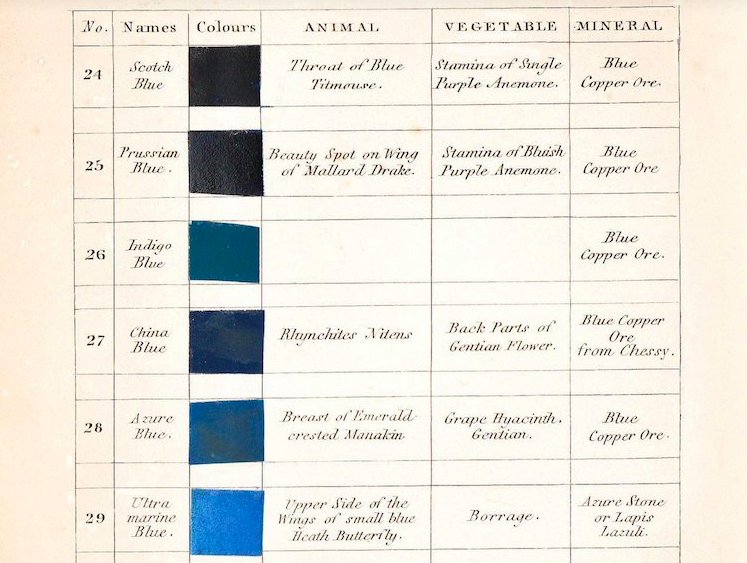 No. Names Colours ANIMAL VEGETABLE MINERAL
24 Scotch Blue Throat of Blue Titmouse. Stamina of Single Purple Anemone. Blue Copper Ore.
25 Prussian Blue. Beauty Spot on Wing of Mallard Drake. Stamina of Bluish Purple Anemone. Blue Copper Ore
26 Indigo Blue Blue Copper Ore.
27 China Blue Rhynchites Nitens Back Parts of Gentian Flower. Blue Copper Ore from Chessy.
28 Azure Blue. Breast of Emerald-crested Manakin Grape Hyacinth. Gentian. Blue Copper Ore.
29 Ultra marine Blue. Upper Side of the Wings of small blue Heath Butterfly. Borrage. Azure Stone or Lapis Lazuli.